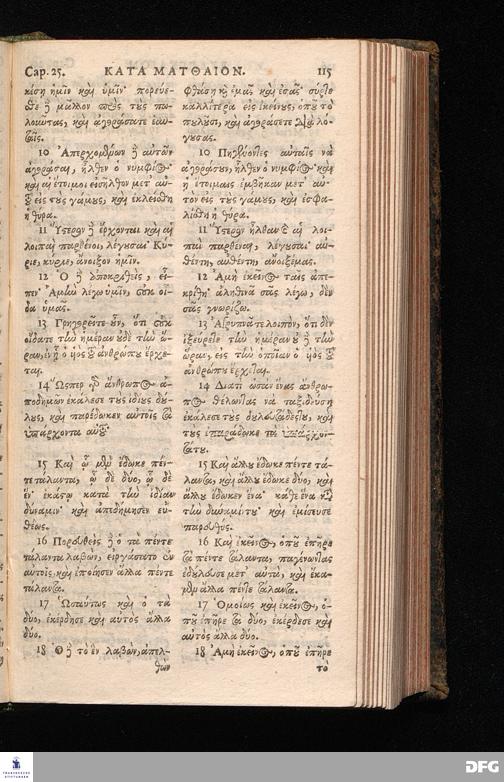 Cap. 25. ΚΑΤΑ ΜΑΤΘΑΙΟΝ. 115
κέσῃ ἡμῖν καὶ ὑμῖν· πορεύε-
σθε δὲ μᾶλλον πρὸς τοὺς πω-
λοῦντας, καὶ ἀγοράσατε ἑαυ-
ταῖς.
10 Ἀπερχομένων δὲ αὐτῶν
ἀγοράσαι, ἦλθεν ὁ νυμφίος·
καὶ αἱ ἕτοιμοι εἰσῆλθον μετ' αὐ-
τοῦ εἰς τοὺς γάμους, καὶ ἐκλείσθη
ἡ θύρα.
11 Ὕστερον δὲ ἔρχονται καὶ αἱ
λοιπαὶ παρθένοι, λέγουσαι· Κύ-
ριε, κύριε, ἄνοιξον ἡμῖν.
12 Ὁ δὲ ἀποκριθεὶς, εἶ-
πεν· Ἀμὴν λέγω ὑμῖν, οὐκ οἶ-
δα ὑμᾶς.
13 Γρηγορεῖτε οὖν, ὅτι οὐκ
οἴδατε τὴν ἡμέραν οὐδὲ τὴν ὥ-
ραν, ἐν ᾗ ὁ υἱὸς τοῦ ἀνθρώπου ἔρχε-
ται.
14 Ὥσπερ γὰρ ἄνθρωπος ἀ-
ποδημῶν ἐκάλεσε τοὺς ἰδίους δού-
λους, καὶ παρέδωκεν αὐτοῖς τὰ
ὑπάρχοντα αὐτοῦ·
15 Καὶ ᾧ μὲν ἔδωκε πέν-
τε τάλαντα, ᾧ δὲ δύο, ᾧ δὲ
ἓν· ἑκάστῳ κατὰ τὴν ἰδίαν
δύναμιν· καὶ ἀπεδήμησεν εὐ-
θέως.
16 Πορευθεὶς δὲ ὁ τὰ πέντε
τάλαντα λαβὼν, εἰργάσατο ἐν
αὐτοῖς, καὶ ἐποίησεν ἄλλα πέντε
τάλαντα.
17 Ὡσαύτως καὶ ὁ τὰ
δύο, ἐκέρδησε καὶ αὐτὸς ἄλλα
δύο.
18 Ὁ δὲ τὸ ἓν λαβὼν, ἀπελ-
θὼν
φθάσῃ καὶ ἐμᾶς καὶ ἐσᾶς· σύρτε
καλλίτερα εἰς ἐκείνους, ὁποῦ τὸ
πουλοῦσι, καὶ ἀγοράσετε διὰ λό-
γουσας.
10 Πηγαίνοντες αὐταῖς νὰ
ἀγοράσουν, ἦλθεν ὁ νυμφίος· καὶ
ἡ ἕτοιμαις ἐμβῆκαν μετ' αὐ-
τὸν εἰς τοὺς γάμους, καὶ ἐσφα-
λίσθη ἡ θύρα.
11 Ὕστερον ἦλθαν καὶ αἱ λοι-
παὶ παρθέναι, λέγουσαι· αὐ-
θέντη, αὐθέντη, ἄνοιξέμας.
12 Ἀμὴ ἐκεῖνος ταῖς ἀπε-
κρίθη· ἀληθινὰ σᾶς λέγω, δὲν
σᾶς γνωρίζω.
13 Ἀγρυπνᾶτε λοιπὸν, ὅτι δὲν
ἐξεύρετε τὴν ἡμέραν οὐδὲ τὴν
ὥραν, εἰς τὴν ὁποίαν ὁ υἱὸς τοῦ
ἀνθρώπου ἔρχεται.
14 Διατὶ ὡσὰν ἕνας ἄνθρω-
πος θέλωντας νὰ ταξιδεύσῃ
ἐκάλεσε τοὺς δούλουςτου, καὶ
τοὺς ἐπαράδωκε τὰ ὑπάρχον-
τάτου.
15 Καὶ ἄλλου ἔδωκε πέντε τά-
λαντα, καὶ ἄλλου ἔδωκε δύο, καὶ
ἄλλου ἔδωκεν ἕνα· καθὲ ἕνα κατὰ
τὴν δύναμίντου· καὶ ἐμίσευσε
παρευθύς.
16 Καὶ ἐκεῖνος, ὁποῦ ἐπῆρε
τὰ πέντε τάλαντα, παγένωντας
ἐδούλευσε μετ' αὐτὰ, καὶ ἔκα-
μεν ἄλλα πέντε τάλαντα.
17 Ὁμοίως καὶ ἐκεῖνος, ὁ-
ποῦ ἐπῆρε τὰ δύο, ἐκέρδεσε καὶ
αὐτὸς ἄλλα δύο.
18 Ἀμὴ ἐκεῖνος, ὁποῦ ἐπῆρε
τὸ
FRANCKESCHE
STIFTUNGEN
DFG